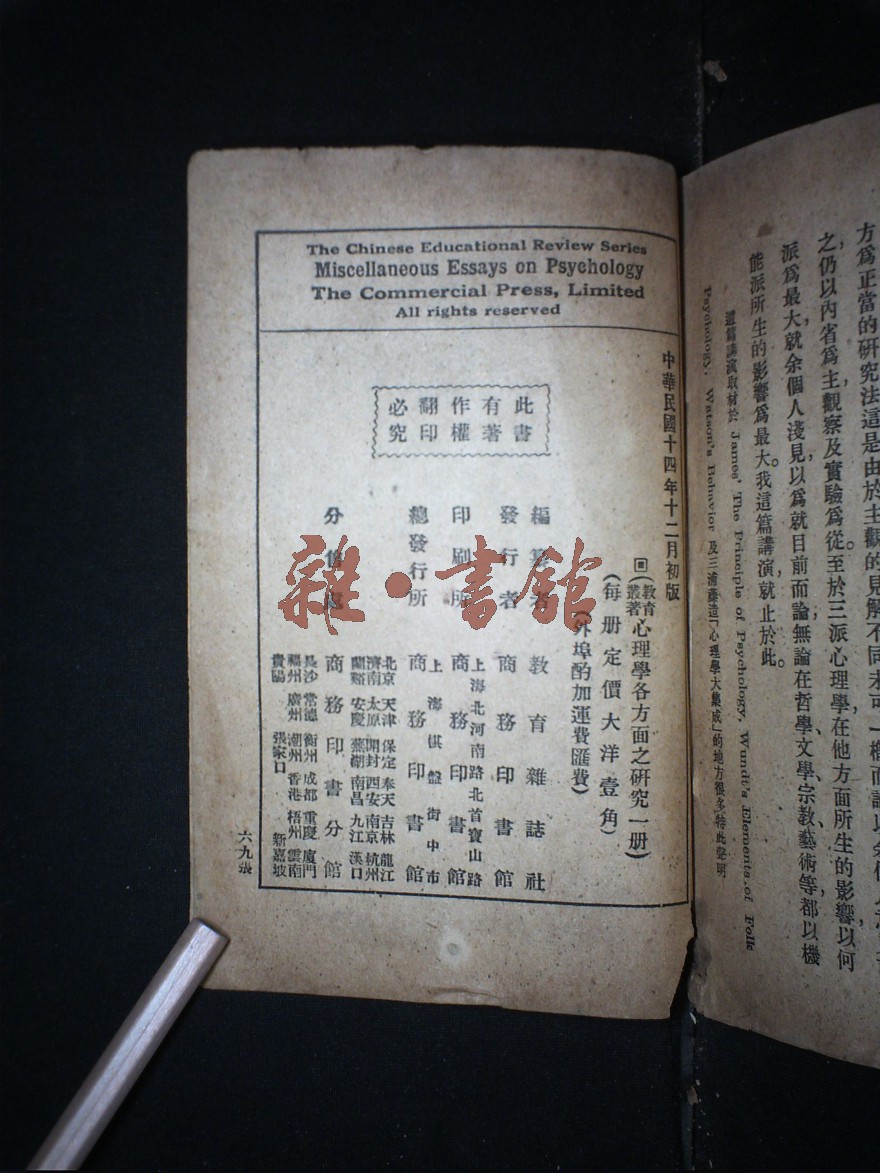 The Chinese Educational Review Series
Miscellaneous Essays on Psychology
The Commercial Press, Limited
All rights reserved
中華民國十四年十二月初版
此書
有著
作權
翻印
必究
(教育叢著 心理學各方面之研究一册)
(每册定價大洋壹角)
(外埠酌加運費匯費)
編纂者 教育雜誌社
發行者 商務印書館
印刷所 上海北河南路北首寶山路 商務印書館
總發行所 上海棋盤街中市 商務印書館
分售處 商務印書分館
北京 天津 保定 奉天 吉林 龍江
濟南 太原 開封 西安 南京 杭州
蘭谿 安慶 蕪湖 南昌 九江 漢口
長沙 常德 衡州 成都 重慶 廈門
福州 廣州 潮州 香港 梧州 雲南
貴陽 張家口 新嘉坡
六九張
雜·書館
方爲正當的研究法這是由於主觀的見解不同未可一槪而論
之,仍以內省爲主觀察及實驗爲從。至於三派心理學在他方面所生的影響以何
派爲最大就余個人淺見以爲就目前而論無論在哲學、文學、宗教、藝術等,都以機
能派所生的影響爲最大。我這篇講演就止於此。
這篇講演取材於 James' The Principle of Psychology, Wundt's Elements of Folk
Psychology, Watson's Behavior 及三浦藤造「心理學大集成」的地方很多,特此聲明